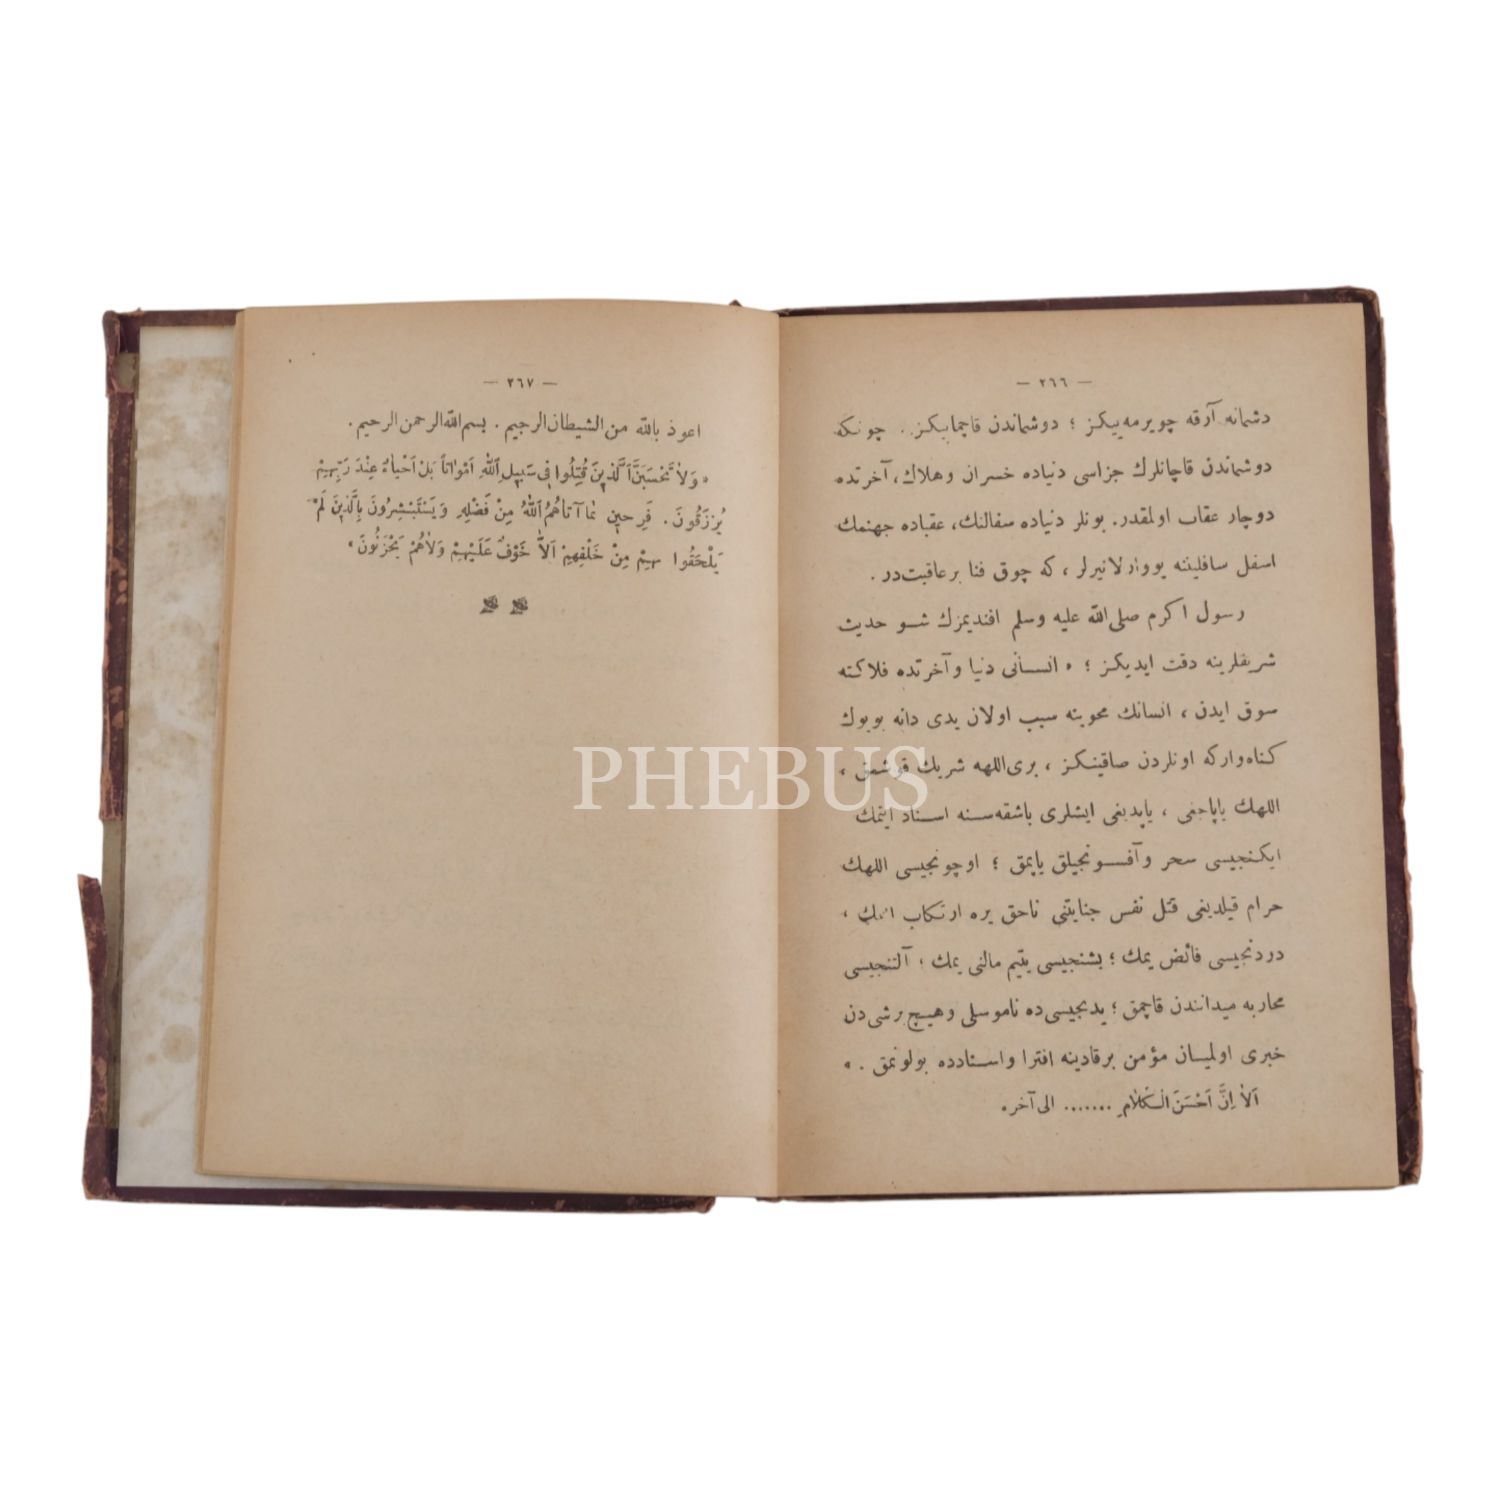 — ٢٦٦ —
دشمانه آرقه چویرمه‌ییكز ؛ دوشماندن قاچمایكز.. چونكه
دوشماندن قاچانلرك جزاسی دنیاده خسران وهلاك، آخرتده
دوچار عقاب اولمقدر. بونلر دنیاده سفالتك، عقباده جهنمك
اسفل سافلیننه یووارلانیرلر ، كه چوق فنا برعاقبت‌در .
رسول اكرم صلی الله علیه وسلم افندیمزك شو حدیث
شریفلرینه دقت ایدیكز ؛ « انسانی دنیا وآخرتده فلاكته
سوق ایدن ، انسانك محوینه سبب اولان یدی دانه بویوك
كناه‌واركه اونلردن صاقینكز ، بری‌اللهه شریك قوشمق ،
اللهك یاپاجغی ، یاپدیغی ایشلری باشقه‌سنه اسناد ایتمك
ایكنجیسی سحر وآفسونجیلق یاپمق ؛ اوچونجیسی اللهك
حرام قیلدیغی قتل نفس جنایتنی ناحق یره ارتكاب اتمك ،
دردنجیسی فائض یمك ؛ بشنجیسی یتیم مالنی یمك ، آلتنجیسی
محاربه میدانندن قاچمق ؛ یدنجیسی‌ده ناموسلی وهیچ برشی‌دن
خبری اولمیان مؤمن برقادینه افترا واسنادده بولونمق . »
اَلاٰ اِنَّ اَحْسَنَ الْكَلاٰمِ ....... الی آخره
— ٢٦٧ —
اعوذ بالله من الشیطان الرجیم . بسم الله الرحمن الرحیم .
« وَلاٰ تَحْسَبَنَّ الَّذِينَ قُتِلُوا فِي سَبِيلِ اللهِ اَمْوٰاتاً بَلْ اَحْيٰاءٌ عِنْدَ رَبِّهِمْ
يُرْزَقُونَ . فَرِحينَ بِمٰا آتٰاهُمُ اللهُ مِنْ فَضْلِهِ وَيَسْتَبْشِرُونَ بِالَّذينَ لَمْ
يَلْحَقُوا بِهِمْ مِنْ خَلْفِهِمْ اَلاّٰ خَوْفٌ عَلَيْهِمْ وَلاٰهُمْ يَحْزَنُونَ »
PHEBUS